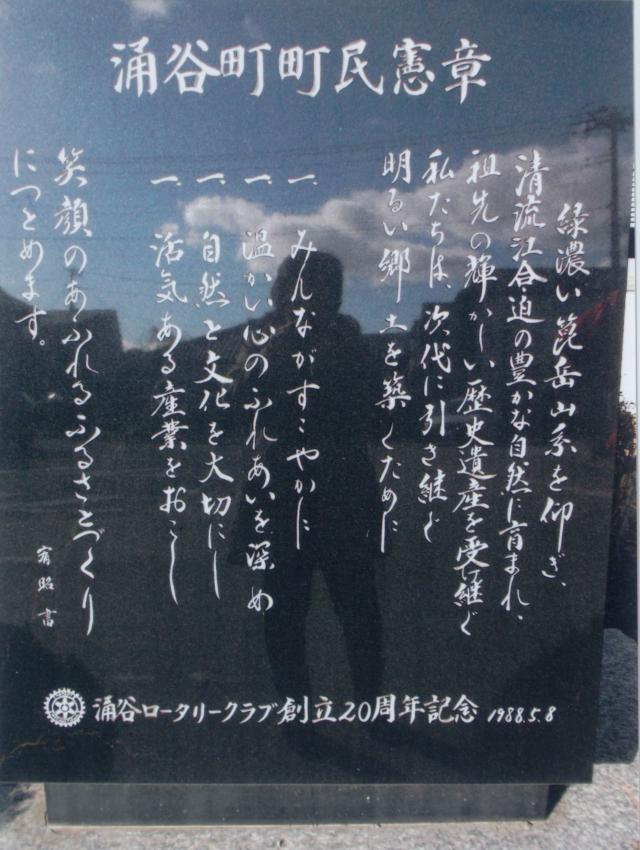 涌谷町町民憲章
緑濃い箆岳山系を仰ぎ、
清流江合迫の豊かな自然に育まれ、
祖先の輝かしい歴史遺産を受け継ぐ
私たちは、次代に引き継ぐ
明るい郷土を築くために
一、みんながすこやかに
一、温かい心のふれあいを深め
一、自然と文化を大切にし
一、活気ある産業をおこし
笑顔のあふれるふるさとづくり
につとめます。
宥昭書
涌谷ロータリークラブ創立20周年記念 1988.5.8